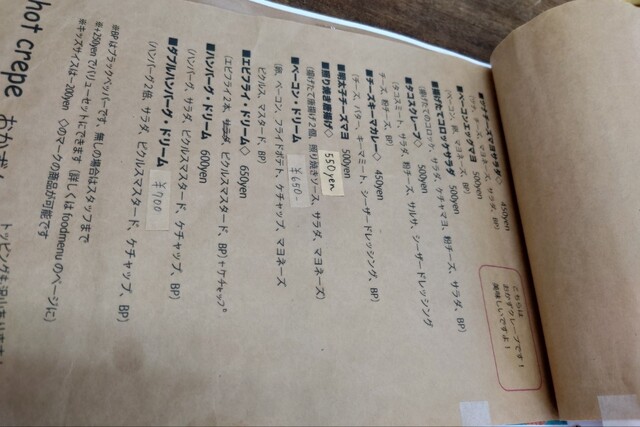 hot crepe おかず
※BPはブラックペッパーです。無しの場合はスタッフまで
※+250yenでバリューセットにできます（詳しくはfoodmenuのページに）
※キッズサイズは-200yen ◇のマークの商品が可能です
こちらは
おかずクレープです！
美味しいですよ！
450yen
500yen
（ベーコン、卵、マヨネーズ、BP）
■揚げたてコロッケサラダ 500yen
（揚げたてのコロッケ、サラダ、ケチャマヨ、粉チーズ、サラダ、BP）
■タコスクレープ◇ 500yen
（タコスミート、サラダ、粉チーズ、サルサ、シーザードレッシング
チーズ、粉チーズ、BP）
■チーズキーマカレー◇ 450yen
（チーズ、バター、キーマミート、シーザードレッシング、BP）
■明太子チーズマヨ 500yen
■照り焼き唐揚げ◇ 550yen
（揚げたて唐揚げ2個、照り焼きソース、サラダ、マヨネーズ）
■ベーコン・ドリーム ¥650-
（卵、ベーコン、フライドポテト、ケチャップ、マヨネーズ
ピクルス、マスタード、BP）
■エビフライ・ドリーム◇ 650yen
（エビフライ2本、サラダ、ピクルスマスタード、BP）+ケチャップ
■ハンバーグ・ドリーム 600yen
（ハンバーグ、サラダ、ピクルスマスタード、ケチャップ、BP）
■ダブルハンバーグ・ドリーム ¥700
（ハンバーグ2倍、サラダ、ピクルスマスタード、ケチャップ、BP）